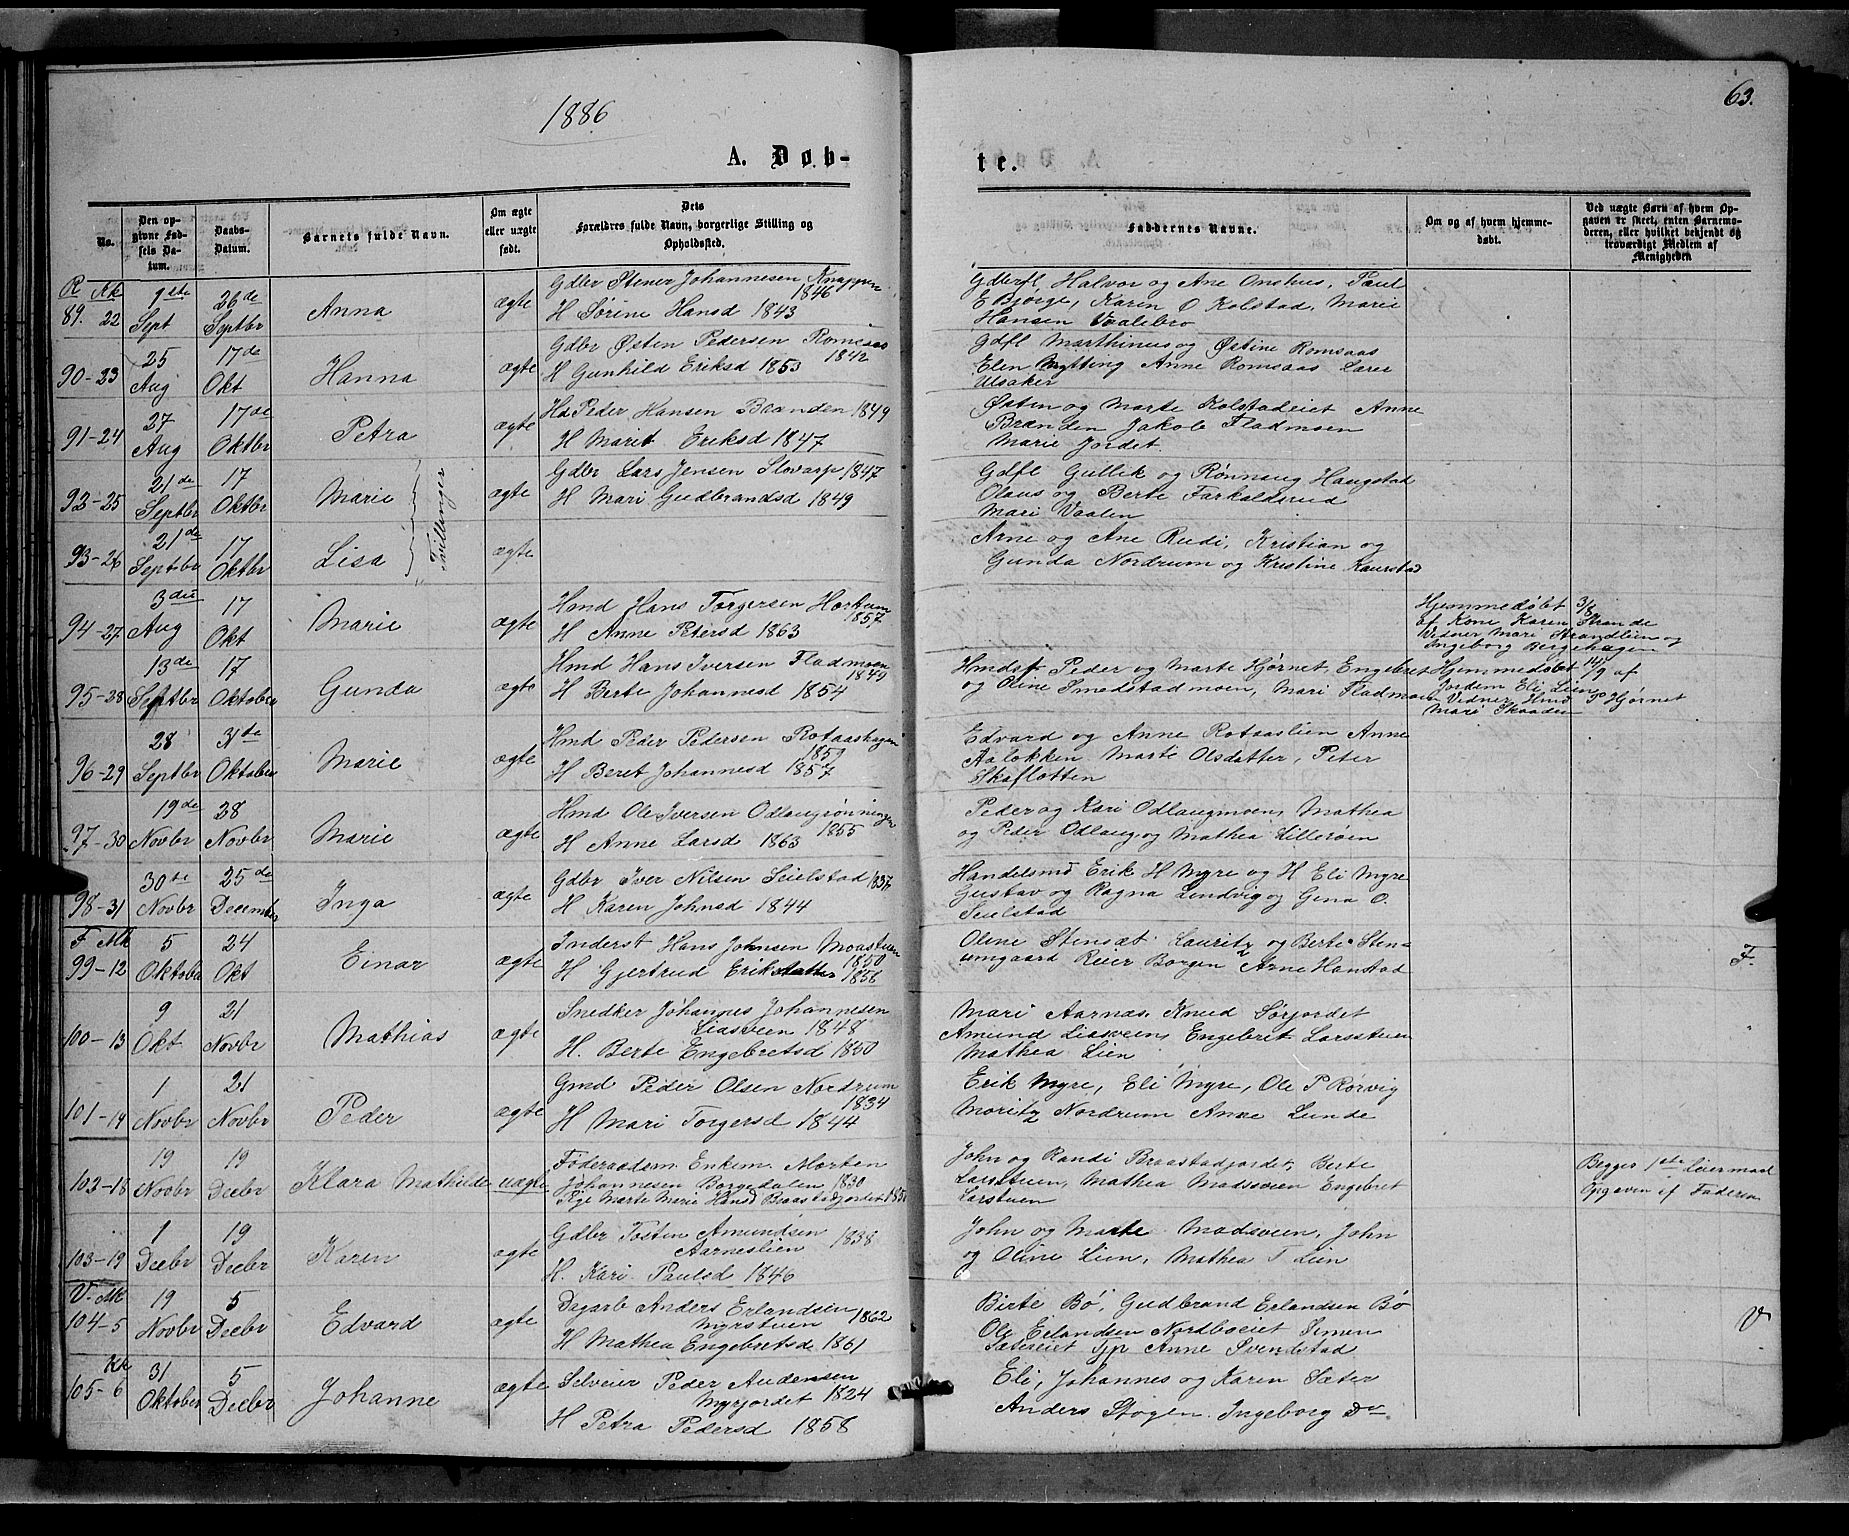 1886
63.
A. Døb-
te.
No.
Den opgivne Fødsels Datum.
Daabs-Datum.
Barnets fulde Navn.
Om ægte eller uægte født.
Dets Forældres fulde Navn, borgerlige Stilling og Opholdssted.
Faddernes Navne.
Om og af hvem hjemmedøbt.
Ved uægte Børn af hvem Opgaven er skeet, enten Barnemoderen, eller hvilket bekjendt og troværdigt Medlem af Menigheden
R Kk
89. 22 1ste Sept 26de Septbr Anna ægte
Gdbr Stener Johannesen Knappen 1846
H Sørine Hansd 1843
Gdbrfl, Halvor og Ane Onshus, Paul
E Bjørge, Karen O Kolstad, Marie
Hansen Vaalebro
90-23 25 Aug 17de Okt Hanna ægte
Gdbr Østen Pedersen Romsaas 1842
H Gunhild Eriksd 1853
Gdfl Marthinus og Østine Romsaas
Elen Mytting Anne Romsaas Lars
Ulsaker
91-24 27 Aug 17de Oktbr Petra ægte
Peder Hansen Braanden 1849
H Marit Eriksd 1847
Østen og Marte Kolstadeiet Anne
Brænden Jakob Fladmoen
Marie Jordet.
92-25 21de Septbr 17 Oktbr Marie ægte
Tvillinger
Gdbr Lars Jensen Slovarp 1847
H Mari Gudbrandsd 1849
Gdfl Gullik og Rønnaug Haugstad
Olaus og Berte Farkalsrud
Mari Vaalen
93-26 21de Septbr 17 Oktbr Lisa ægte
Arne og Ane Rudi, Kristian og
Gunda Nordrum og Kristine Kaurstad
94-27 3die Aug 17 Okt Marie ægte
Hmd Hans Torgersen Hortun 1857
H Anne Petersd 1863
Hjemmedøbt 3/8
af Kone Karen Strande
Vidner Mari Strandlien og
Ingeborg Bergehagen
95-28 13de Septbr 17 Oktober Gunda ægte
Hmd Hans Iversen Fladmoen 1849
H Berte Johannesd 1854
Hmdst Peder og Marte Hjørnet, Engebret
og Oline Smedstadmoen, Mari Fladmoen
Hjemmedøbt 14/9 af
Jordem Eli Lien
Vidner Hmd P Hjørnet
Mari Skaaden
96-29 28 Septbr 31te Oktober Marie ægte
Hmd Peder Pedersen Rotaashagen 1859
H Beret Johannesd 1857
Edvard og Anne Rotaaslien Anne
Aaløkken Marte Olsdatter, Peter
Skafløtten
97-30 19de Novbr 28 Novbr Marie ægte
Hmd Ole Iversen Odlaugrønningen 1855
H Anne Larsd 1863
Peder og Kari Odlaugmoen, Mathea
og Peder Odlaug og Mathea Lillerøen
98-31 30te Novbr 25de December Inga ægte
Gdbr Iver Nilsen Seielstad 1837
H Karen Johnsd 1844
Handelsmd Erik H Myre og H Eli Myre
Gustav og Ragna Lindvig og Gina O.
Seielstad
F Mk
99-12 5 Oktober 24 Okt Einar ægte
Inderst Hans Johnsen Moastuen 1850
H Gjertrud Eriksdatter 1856
Oline Stensæt Lauritz og Berte Sten-
umgaard Reier Borgen Arne Hanstad
F.
100-13 9 Okt 21 Novbr Mathias ægte
Snedker Johannes Johannesen
Liasveen 1848
H. Berte Engebretsd 1850
Mari Aarnæs, Knud Sørjordet
Amund Liasveen, Engebret Larsstuen
Mathea Lien
101-14 1 Novbr 21 Novbr Peder ægte
Gmd Peder Olsen Nordrum 1834
H Mari Torgersd 1844
Erik Myre, Eli Myre, Ole P Rørvig
Moritz Nordrum Anne Lunde
102-18 19 Novbr 19 Decbr Klara Mathilde uægte
Føderaadsm. Enkem. Morten
Johannesen Borgedalen 1830
Pige Marte Marie Hansd Braastadjordet
John og Randi Braastadjordet, Berte
Larsstuen, Mathea Madsveen Engebret
Larstuen
Begges 1ste Leiermaal
Opgiven af Faderen
103-19 1 Decbr 19 Decbr Karen ægte
Gdbr Tosten Amundsen
Aarneslien 1838
H. Kari Paulsd 1846
John og Marte Madsveen, John
og Oline Lien, Mathea T Lien
V. Mk
104-5 19 Novbr 5 Decbr Edvard ægte
Dagarb Anders Erlandsen
Myrstuen 1862
H Mathea Engebretsd 1861
Birte Bø, Gudbrand Erlandsen Bø
Ole Erlandsen Nordbøeiet Simen
Sætereiet Anne Svendstad
V
Kk
105-6 31 Oktober 5 Decbr Johanne ægte
Selveier Peder Andersen
Myrjordet 1824
H Petra Pedersd 1858
Eli, Johannes og Karen Sæter
Anders Stogen. Ingeborg Do